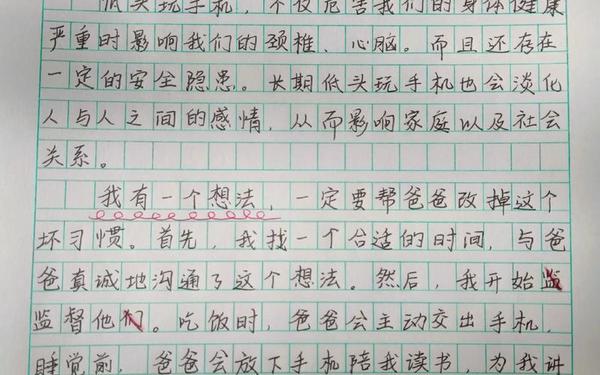 低头玩手机，不仅危害我们的身体健康
严重时影响我们的颈椎、心脑。而且还存在
一定的安全隐患。长期低头玩手机也会淡化
人与人之间的感情，从而影响家庭以及社会
关系。
我有一个想法，一定要帮爸爸改掉这个
坏习惯。首先，我找一个合适的时间，与爸
爸真诚地沟通了这个想法。然后，我开始监
监督他们。吃饭时，爸爸会主动交出手机，
睡觉前，爸爸会放下手机陪我读书，为我讲